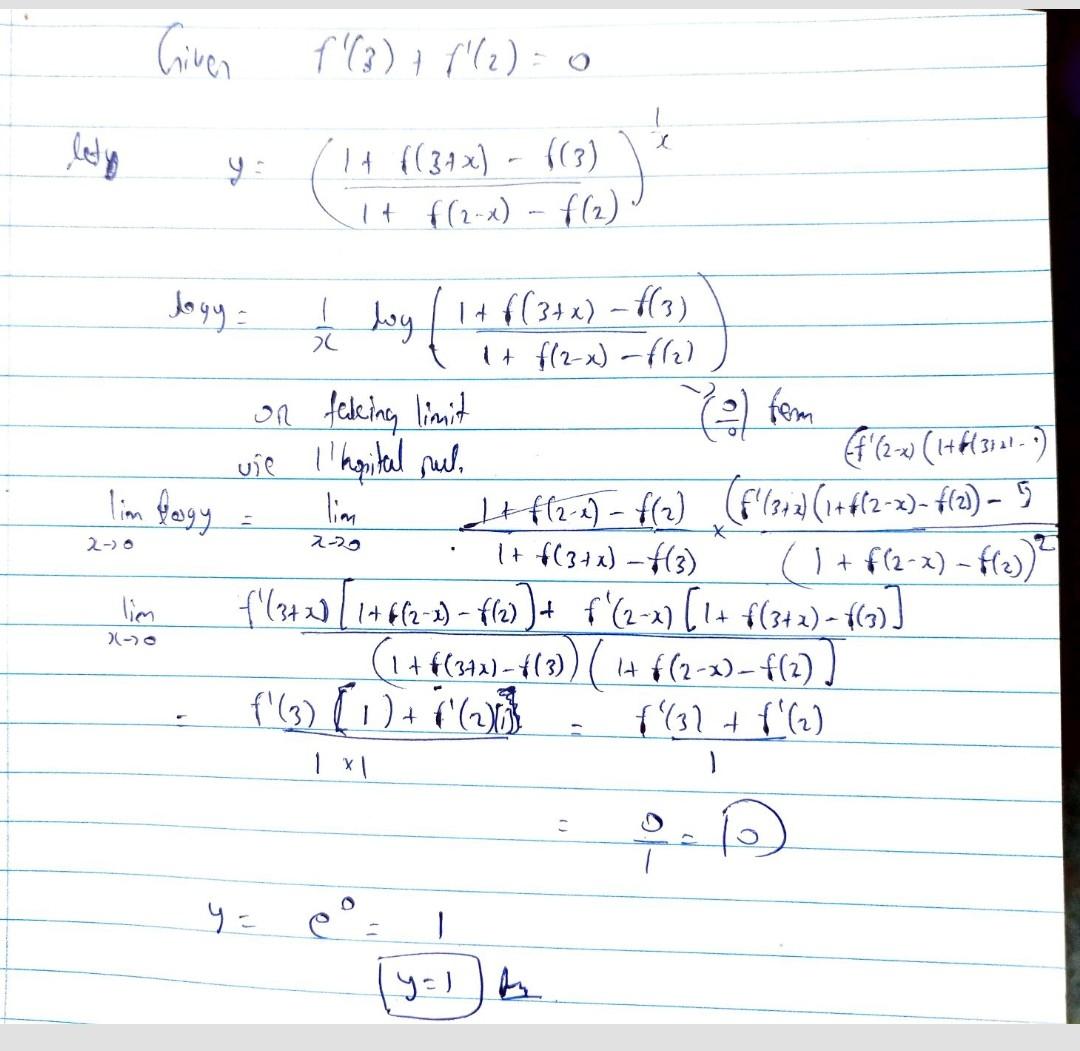 Given f'(3) + f'(2) = 0
let y = ( (1 + f(3+x) - f(3)) / (1 + f(2-x) - f(2)) )^(1/x)
logy = 1/x log ( (1 + f(3+x) - f(3)) / (1 + f(2-x) - f(2)) )
on taking limit → (0/0) form
use l'hopital rul.
(-f'(2-x) (1+f(3+x)-..)
lim x→0 logy = lim x→0 (1 + f(2-x) - f(2)) / (1 + f(3+x) - f(3)) × (f'(3+x) (1+f(2-x)-f(2)) - / (1 + f(2-x) - f(2))^2
lim x→0 f'(3+x) [1+f(2-x) - f(2)] + f'(2-x) [1 + f(3+x) - f(3)] / (1 + f(3+x) - f(3)) (1 + f(2-x) - f(2)]
= f'(3) [1) + f'(2)[1] / 1×1 = f'(3) + f'(2) / 1
= 0/1 = 0
y = e^0 = 1
y=1